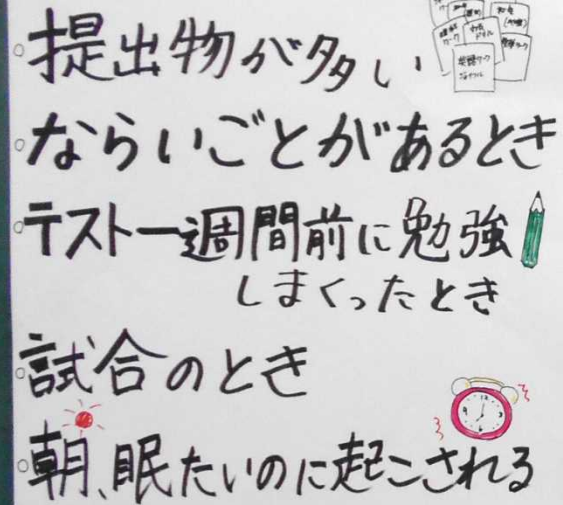 。提出物が多い
。ならいごとがあるとき
。テスト一週間前に勉強
しまくったとき
。試合のとき
。朝、眠たいのに起こされる